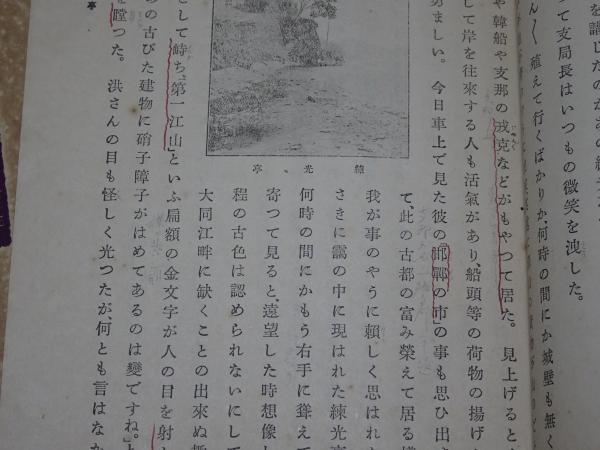 を講じたのがあの
つて支局長はいつもの微笑を洩した。
ん〱殖えて行くばかりか、何時の間にか城壁も無く
や韓船や支那の戎克などがもやつて居た。見上げると
して岸を往來する人も活氣があり、船頭等の荷物の揚げ
ましい。今日車上で見た彼の『邯鄲の市』の事も思ひ出
て、此の古都の富み榮えて居る
我が事のやうに頼しく思はれ
さきに靄の中に現はれた練光
何時の間にかもう右手に聳えて
寄つて見ると、遠望した時想像
程の古色は認められないにして
大同江畔に缺くことの出來ぬ
練光亭
として峙ち、『第一江山』といふ扁額の金文字が人の目を射
らの古びた建物に硝子障子がはめてあるのは變ですね。』と
を瞠つた。洪さんの目も怪しく光つたが、何とも言はなか
亭